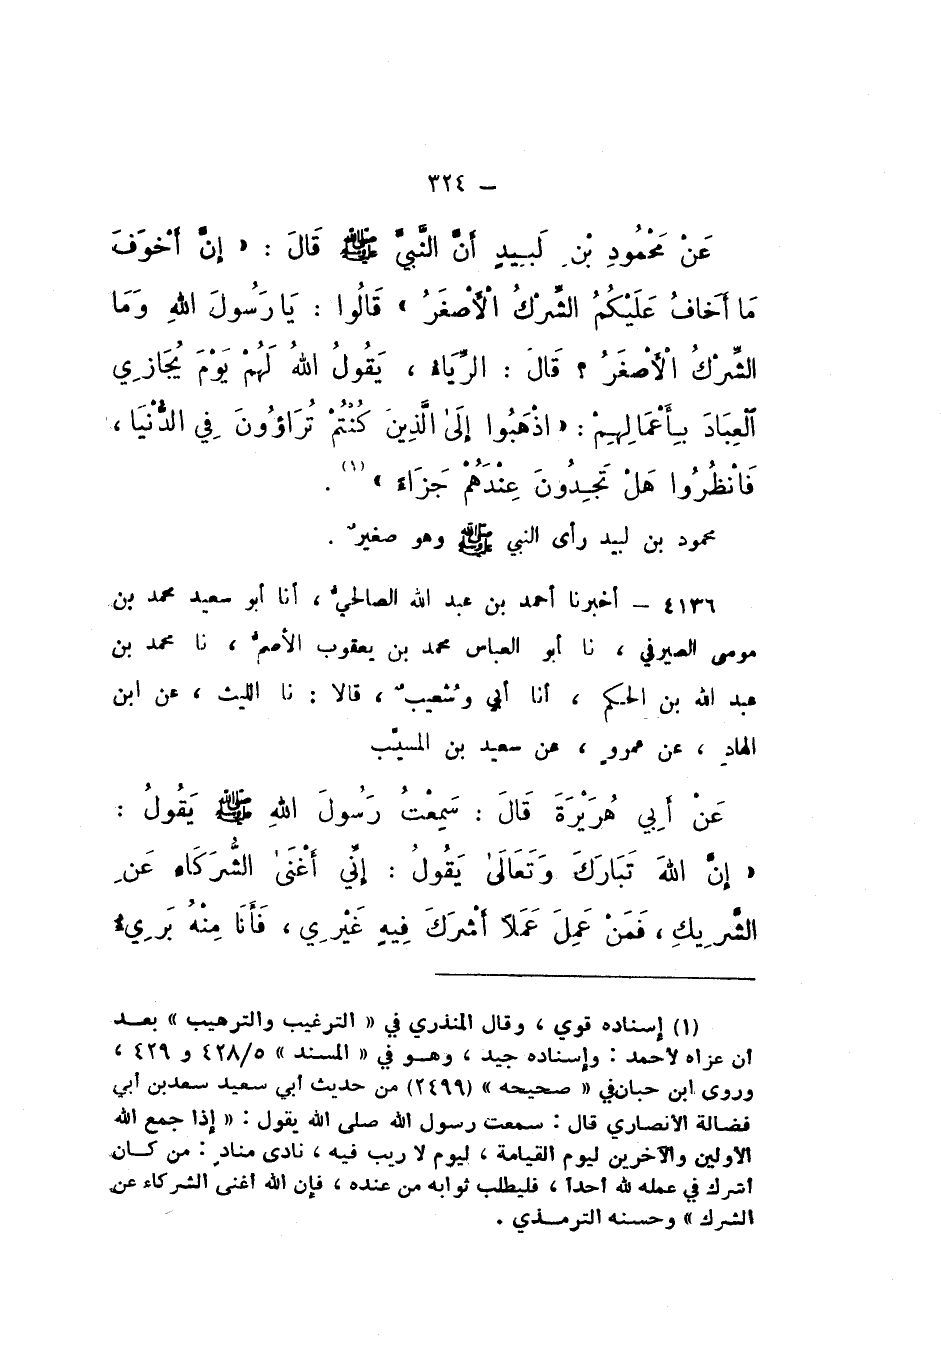 ــ ٣٢٤
عَنْ مَحْمُودِ بْنِ لَبِيدٍ أَنَّ النَّبِيَّ ﷺ قَالَ : « إِنَّ أَخْوَفَ
مَا أَخَافُ عَلَيْكُمُ الشِّرْكُ الْأَصْغَرُ » قَالُوا : يَا رَسُولَ اللهِ وَمَا
الشِّرْكُ الْأَصْغَرُ ؟ قَالَ : الرِّيَاءُ ، يَقُولُ اللهُ لَهُمْ يَوْمَ يُجَازِي
الْعِبَادَ بِأَعْمَالِهِمْ : « اذْهَبُوا إِلَىٰ الَّذِينَ كُنْتُمْ تُرَاؤُونَ فِي الدُّنْيَا ،
فَانْظُرُوا هَلْ تَجِدُونَ عِنْدَهُمْ جَزَاءً » (١) .
محمود بن لبيد رأى النبي ﷺ وهو صغيرٌ .
٤١٣٦ – أخبرنا أحمد بن عبد الله الصالحيُّ ، أنا أبو سعيد محمد بن
موسى الصيرفي ، نا أبو العباس محمد بن يعقوب الأصمُّ ، نا محمد بن
عبد الله بن الحكم ، أنا أبي وشعيبٌ ، قالا : نا الليث ، عن ابن
الهادِ ، عن عمروٍ ، عن سعيد بن المسيَّب
عَنْ أَبِي هُرَيْرَةَ قَالَ : سَمِعْتُ رَسُولَ اللهِ ﷺ يَقُولُ :
« إِنَّ اللهَ تَبَارَكَ وَتَعَالَىٰ يَقُولُ : إِنِّي أَغْنَىٰ الشُّرَكَاءِ عَنِ
الشَّرِيكِ ، فَمَنْ عَمِلَ عَمَلًا أَشْرَكَ فِيهِ غَيْرِي ، فَأَنَا مِنْهُ بَرِيءٌ
(١) إسناده قوي ، وقال المنذري في « الترغيب والترهيب » بعد
أن عزاه لأحمد : وإسناده جيد ، وهو في « المسند » ٤٢٨/٥ و ٤٢٩ ،
وروى ابن حبان في « صحيحه » (٢٤٩٩) من حديث أبي سعيد سعدبن أبي
فضالة الأنصاري قال : سمعت رسول الله صلى الله يقول : « إذا جمع الله
الأولين والآخرين ليوم القيامة ، ليوم لا ريب فيه ، نادى منادٍ : من كان
أشرك في عمله لله أحداً ، فليطلب ثوابه من عنده ، فإن الله أغنى الشركاء عن
الشرك » وحسنه الترمذي .